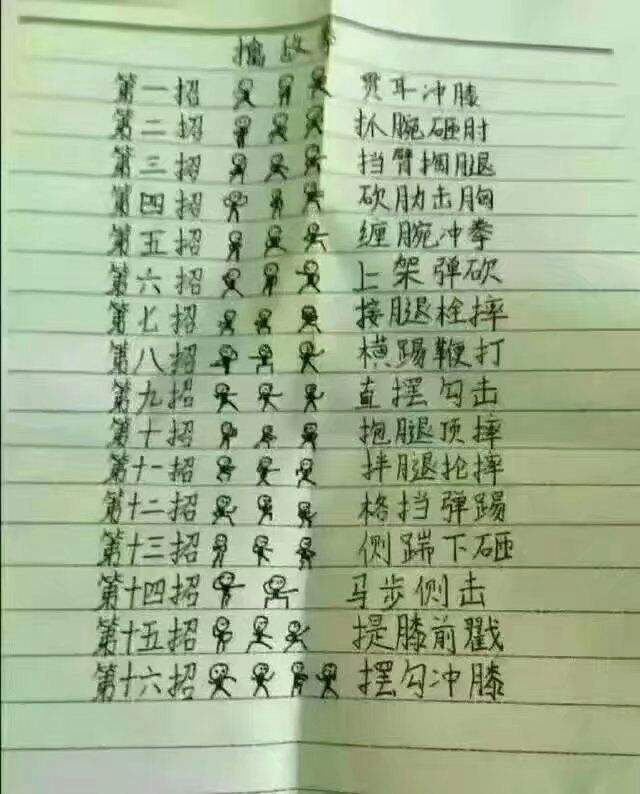 擒敌拳
第一招 贯耳冲膝
第二招 抓腕砸肘
第三招 挡臂掏腿
第四招 砍肋击胸
第五招 缠腕冲拳
第六招 上架弹砍
第七招 接腿栓摔
第八招 横踢鞭打
第九招 直摆勾击
第十招 抱腿顶摔
第十一招 拌腿抡摔
第十二招 格挡弹踢
第十三招 侧踹下砸
第十四招 马步侧击
第十五招 提膝前戳
第十六招 摆勾冲膝